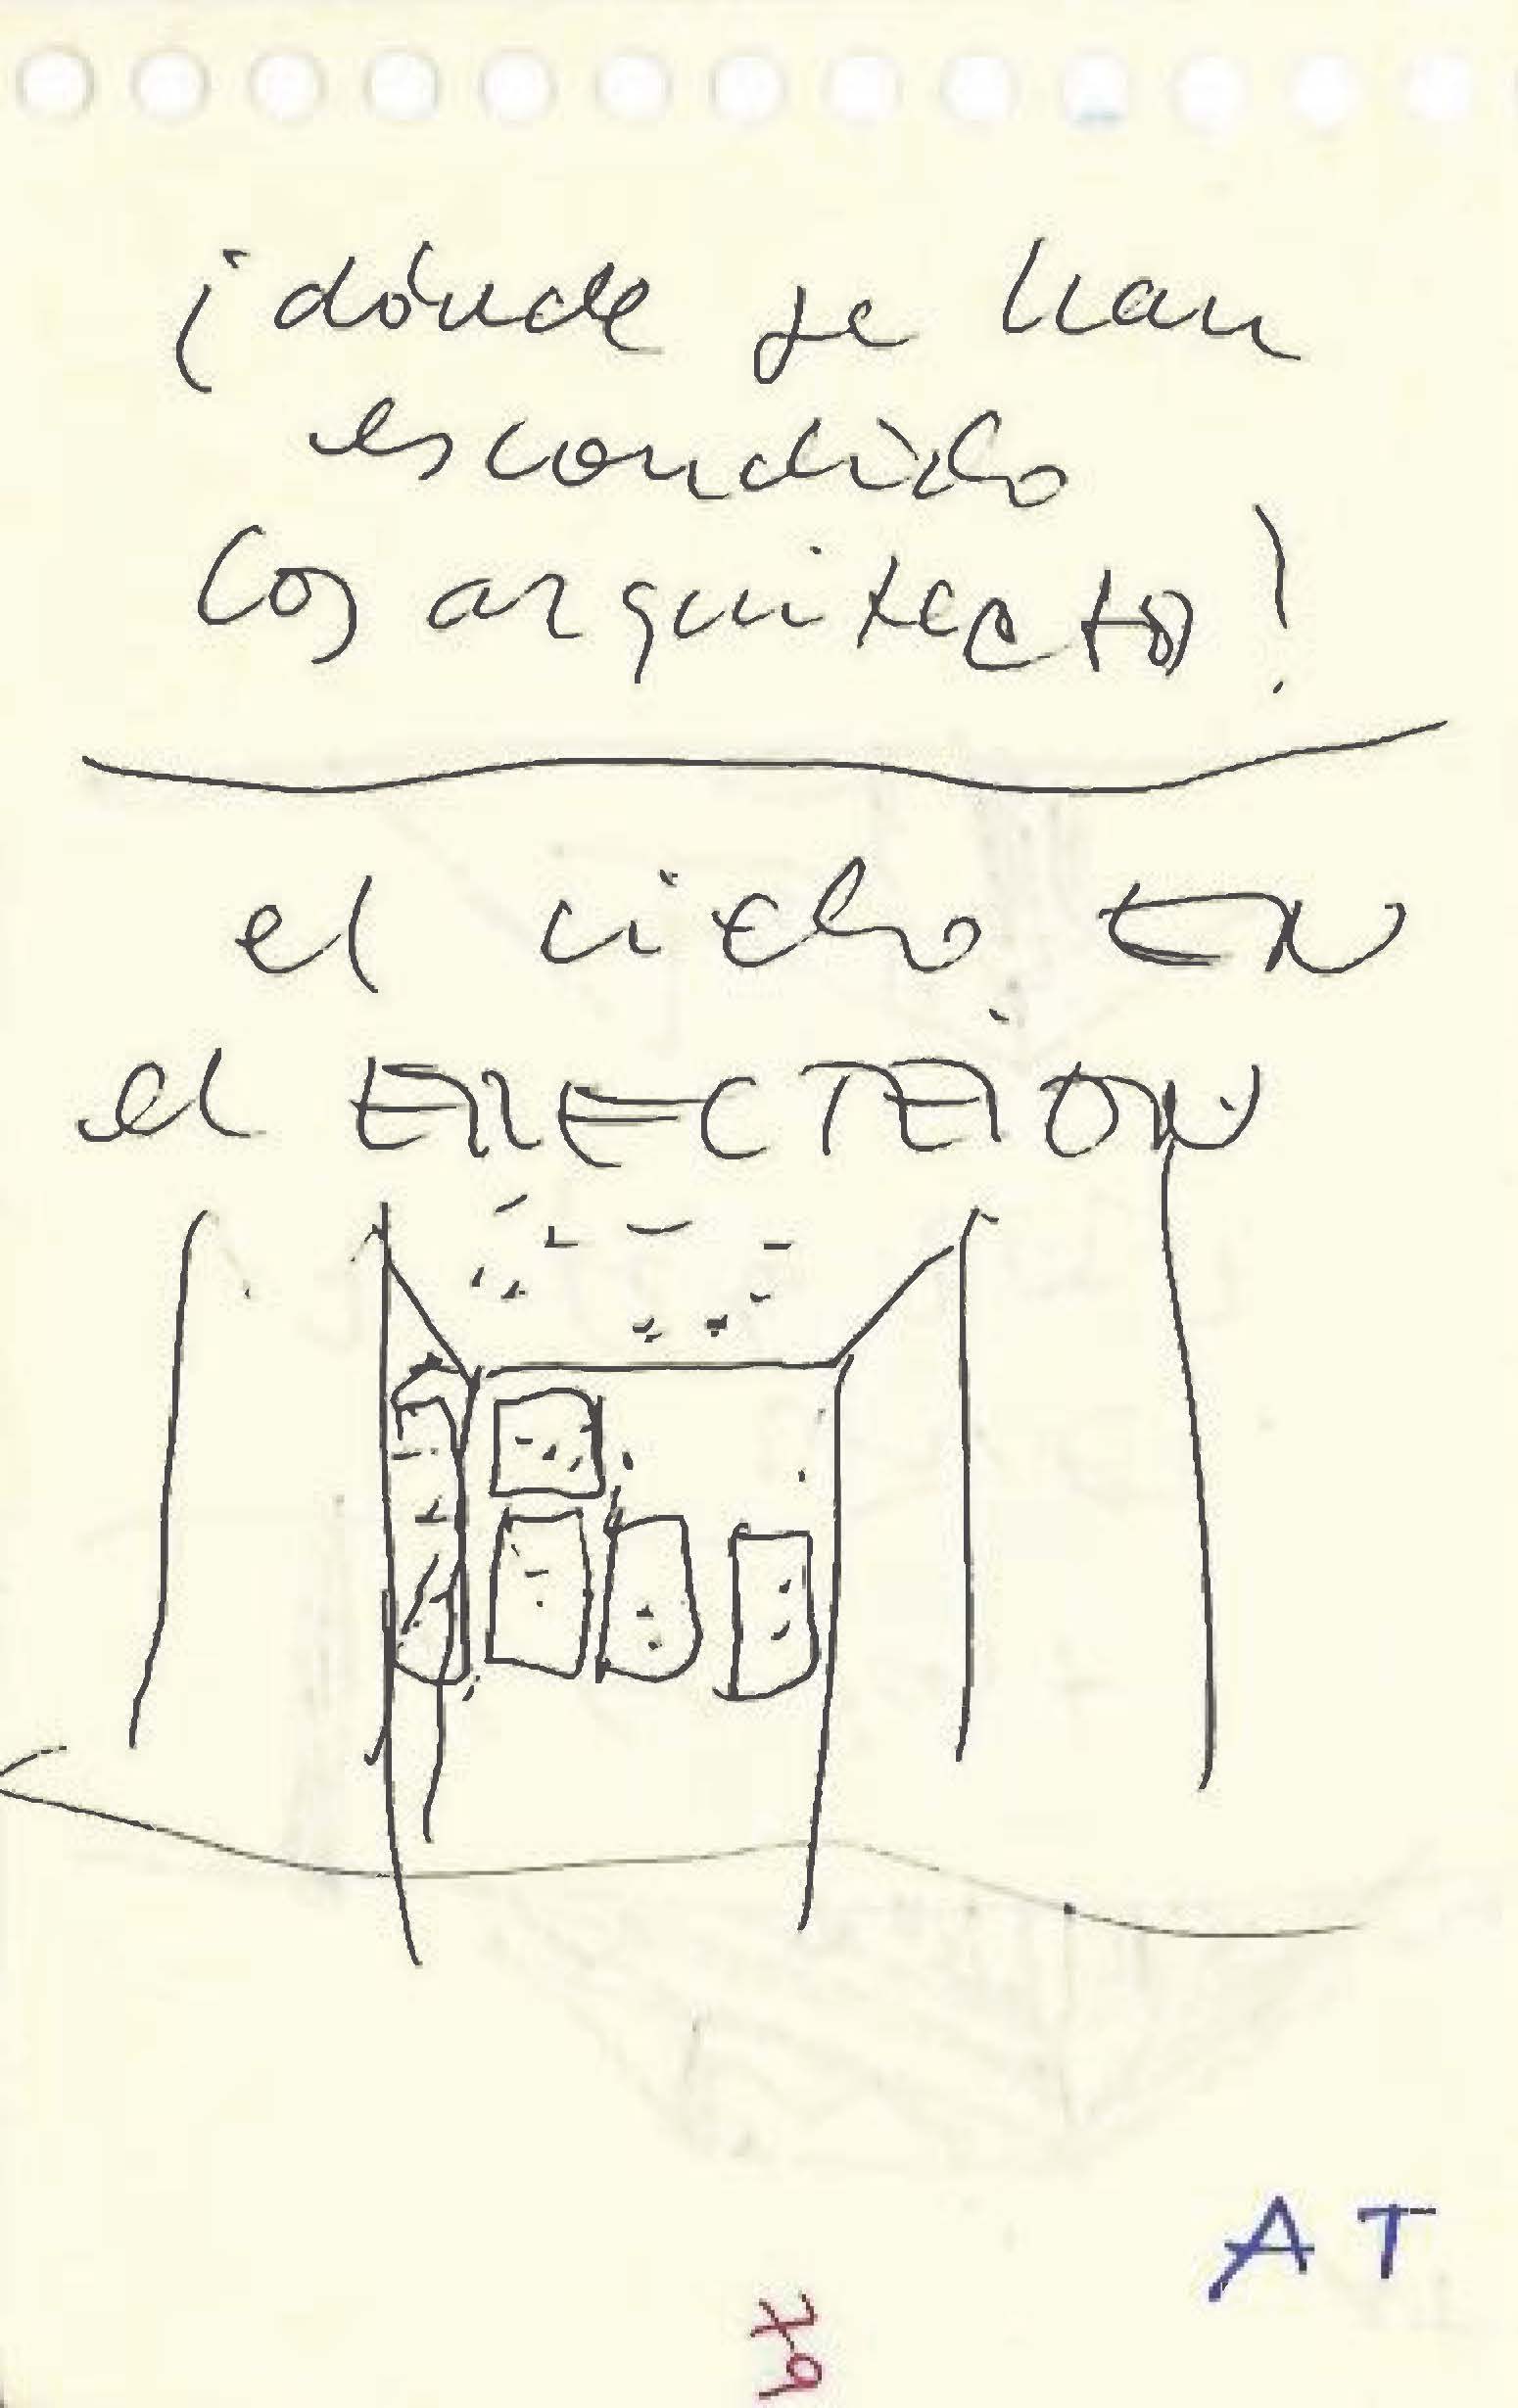 ¡dónde se han
escondido
los arquitectos!
el cielo en
el ERECTEÌON
AT
79